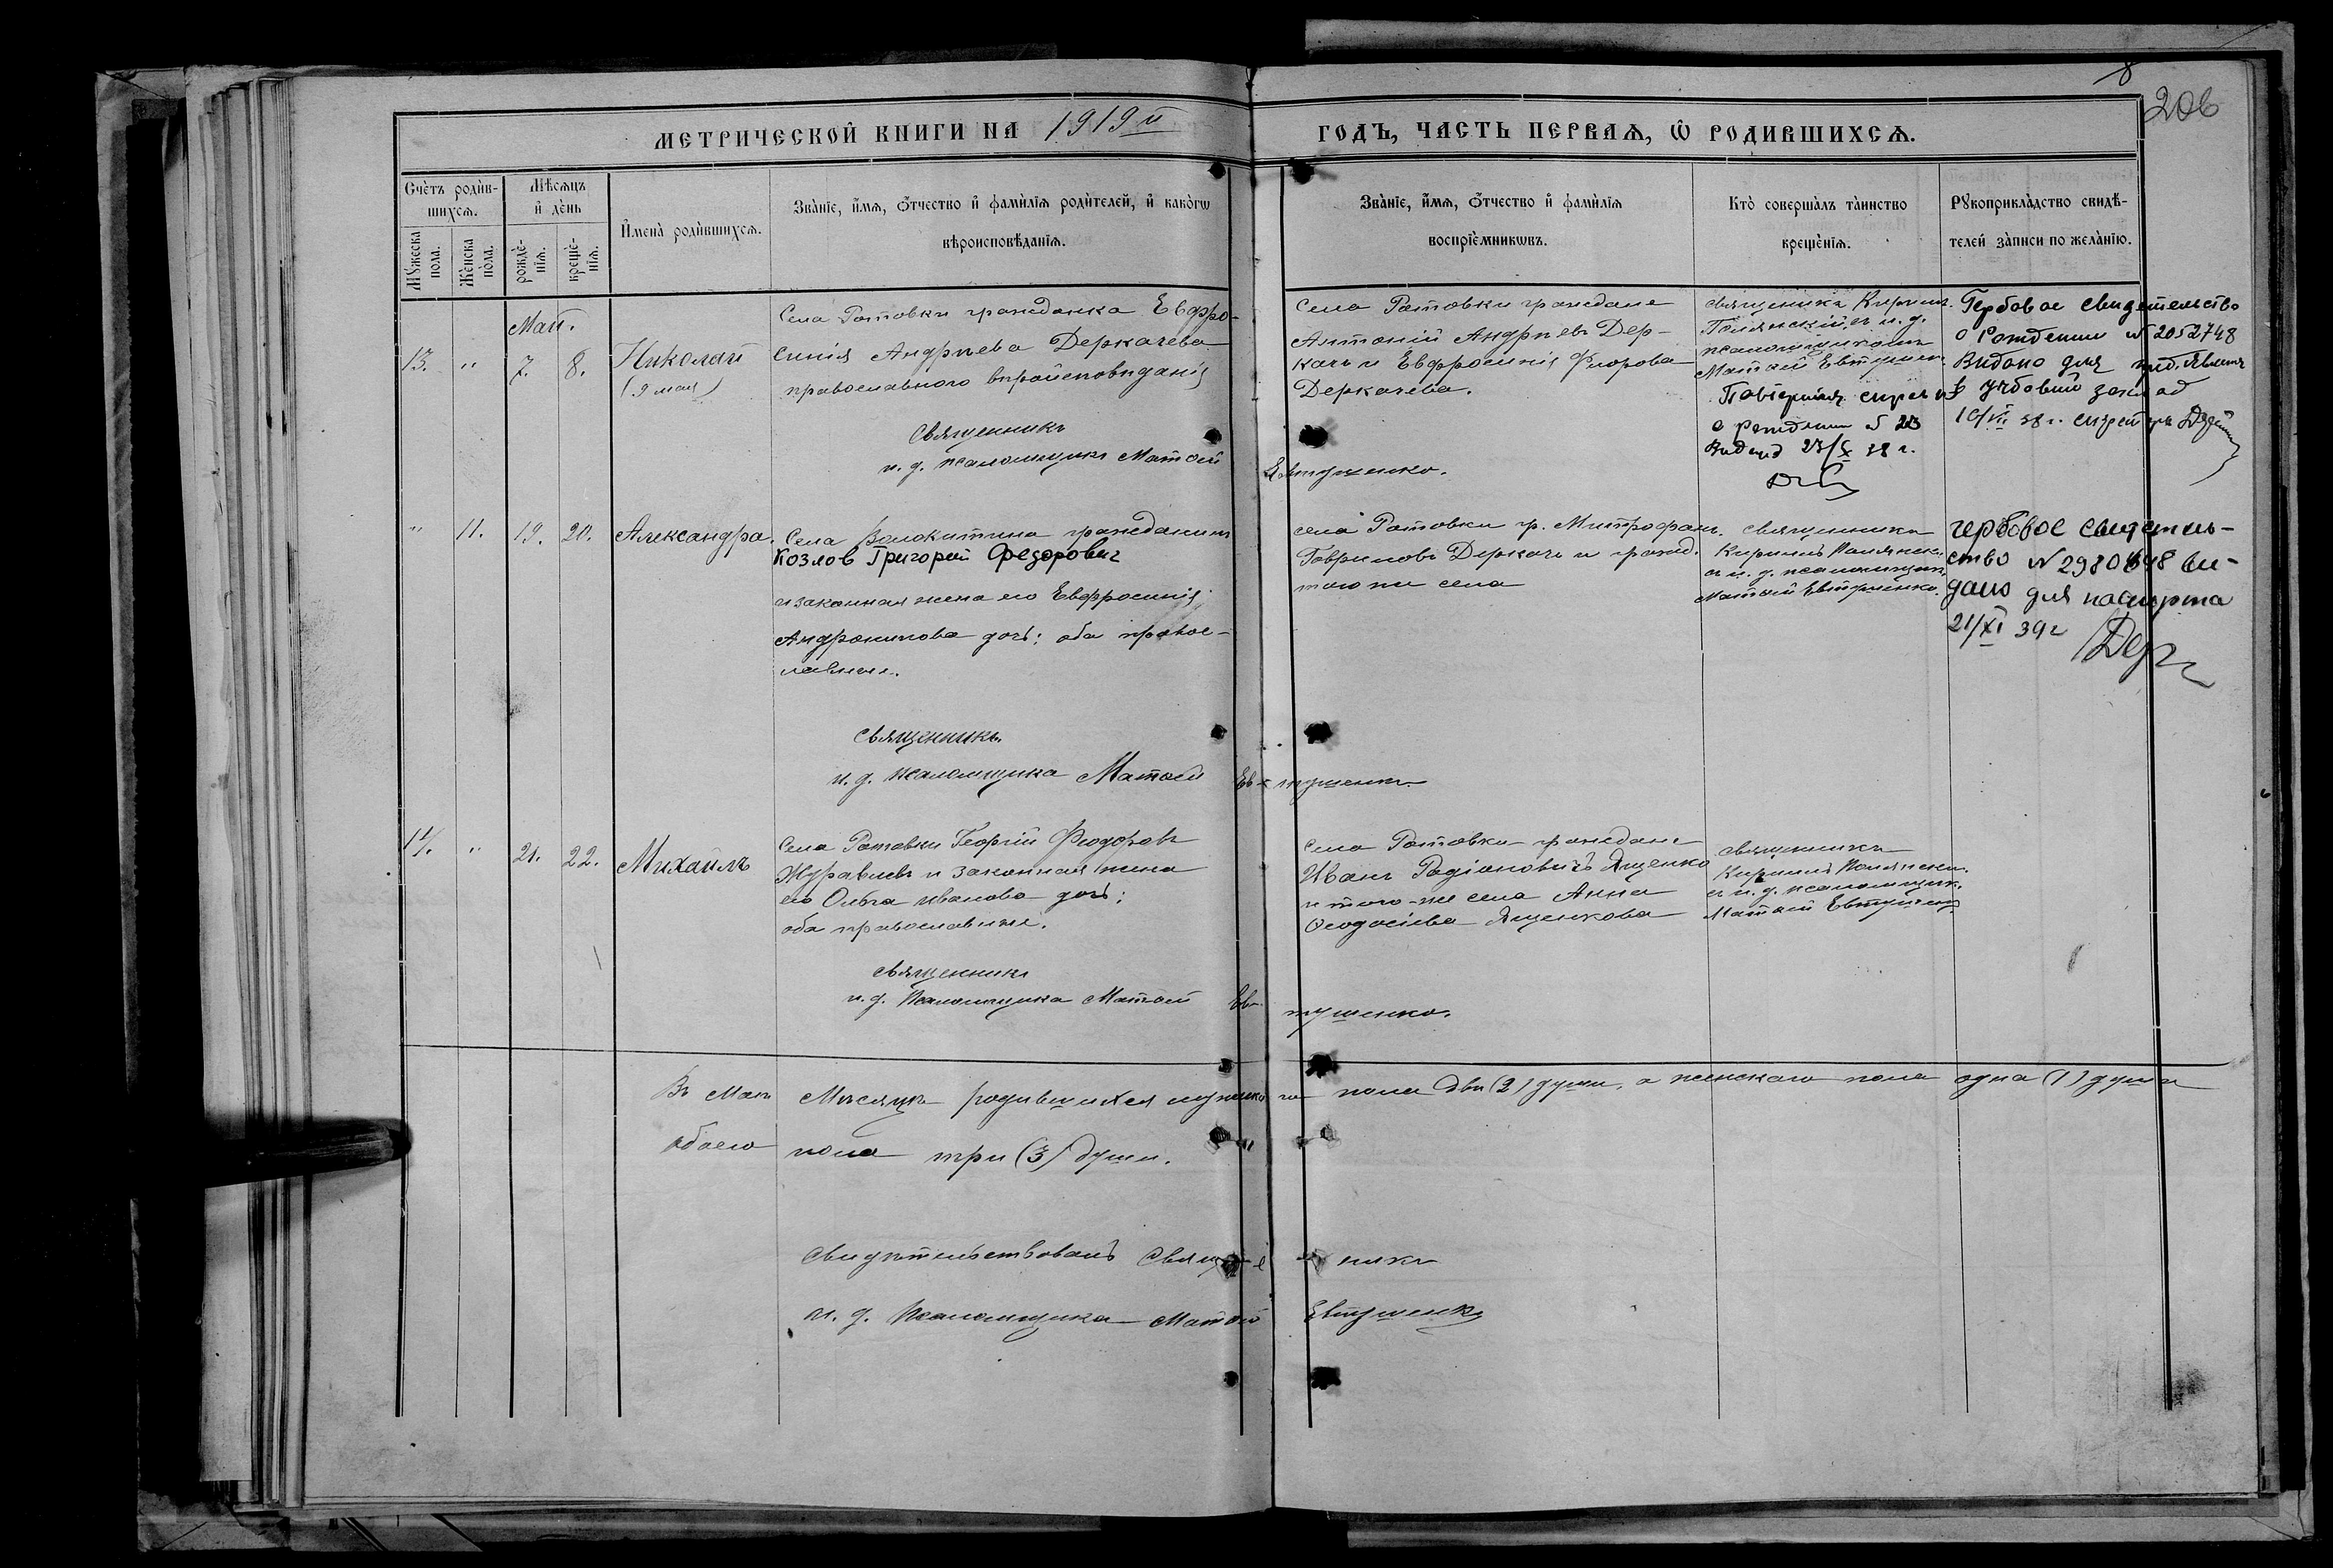 8
206
МЕТРИЧЕСКОЙ КНИГИ НА 1919й ГОДЪ, ЧАСТЬ ПЕРВАѦ, Ѿ РОДИВШИХСѦ.
Счетъ родив-
шихсѧ.
Мꙋжеска пола.
Женска пола.
Мѣсѧцъ
и день
рожде-
нїѧ.
креще-
нїѧ.
Имена родившихсѧ.
Званїе, имѧ, отчество и фамилїѧ родителей, и какогѡ
вѣроисповѣданїѧ.
Званїе, имѧ, отчество и фамилїѧ
воспрїемникѡвъ.
Кто совершалъ таинство
крещенїѧ.
Рꙋкоприкладство свидѣ-
телей записи по желанїю.
Май.
13. " 7. 8. Николай
(9 мая)
Села Ротовки гражданка Евфро-
синія Андреева Деркачева
православного вѣроисповѣданія
Священникъ
и. д. псаломщика Матѳей Евтушенко.
Села Ротовки граждане
Антоній Андреевъ Дер-
качъ и Евфросинія Флорова
Деркачева.
священникъ Кириллъ
съ и. д.
псаломщикомъ
Матѳей Евтушен.
о рождении
23/X 38 г.
Гербовое свидетельство
о рождении № 2052748
Видано для
в учбовий заклад
38 г.
" 11. 19. 20. Александра.
Села Волокитина гражданинъ
Козлов Григорий Федорович
и законная жена его Евфросинія
Андроникова дочь; оба правос-
лавные.
Священникъ
и. д. псаломщика Матѳей Евтушенко.
села Ротовки гр. Митрофанъ
Гавриловъ Деркачъ и гражд.
того же села
священникъ
Кириллъ
съ и. д. псаломщик.
Матѳей Евтушенко.
Гербовое свидетель-
ство № 2980648 ви-
дано для паспорта
21/XI 39 г
14. " 21. 22. Михаилъ
Села Ротовки Георгій Ѳеодоровъ
Журавлевъ и законная жена
его Ольга Иванова дочь;
оба православные.
Священникъ
и. д. Псаломщика Матѳей Евтушенко.
Села Ротовки граждане
Иванъ Родіоновичъ Ященко
и того-же села Анна
Ѳеодосіева Ященкова
священникъ
Кириллъ
съ и. д. псаломщик.
Матѳей Евтушенко
Въ Маѣ Мѣсяцѣ родившихся мужского пола двѣ (2) души, а женскаго пола одна (1) душа
обоего пола три (3) души.
Свидѣтельствовалъ Священникъ
и. д. Псаломщика Матѳей Евтушенко